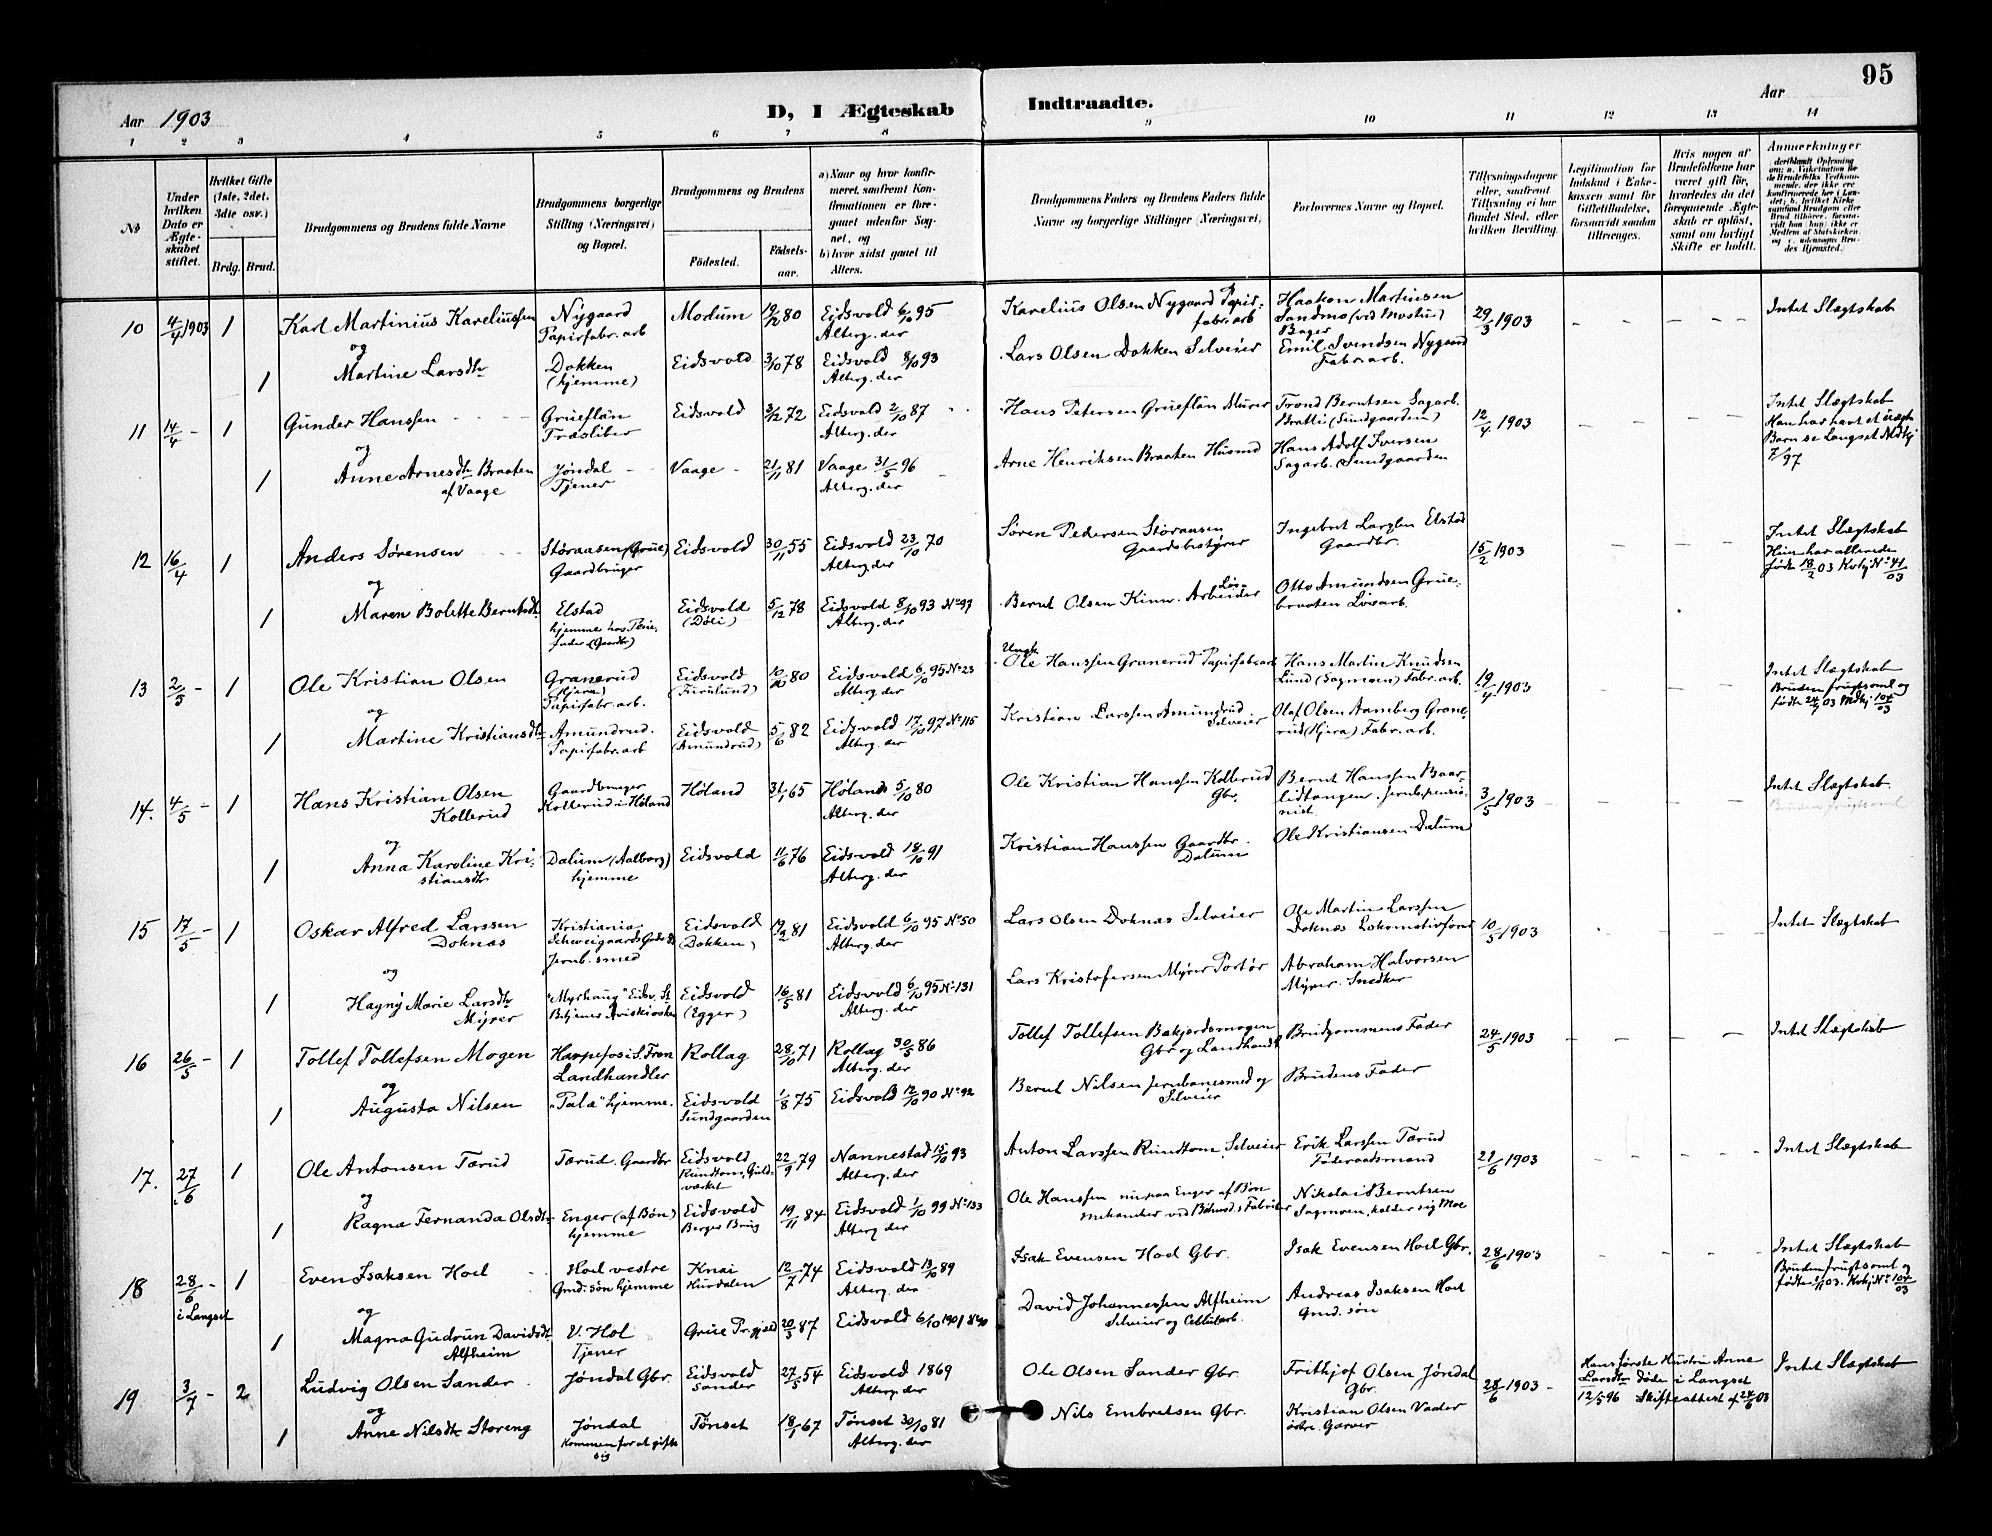 95
Aar 1903
D, I Ægteskab Indtraadte.
Aar
1 2 3 4 5 6 7 8 9 10 11 12 13 14
No
Under hvilken Dato er Ægteskabet stiftet.
Hvilket Gifte (1ste, 2det, 3die osv.)
Brdg. Brud.
Brudgommens og Brudens fulde Navne
Brudgommens borgerlige Stilling (Næringsvei) og Bopæl.
Brudgommens og Brudens
Födested.
Födselsaar.
a) Naar og hvor konfirmeret, saafremt Konfirmationen er foregaaet udenfor Sognet, og
b) hvor sidst gaaet til Alters.
Brudgommens Faders og Brudens Faders fulde Navne og borgerlige Stillinger (Næringsvei)
Forlovernes Navne og Bopæl.
Tillysningsdagene eller, saafremt Tillysning ei har fundet Sted, efter hvilken Bevilling.
Legitimation for Indskud i Enkekassen samt for Giftetilladelse, forsaavidt saadan tiltrænges.
Hvis nogen af Brudefolkene har været gift för, hvorledes da det foregaaende Ægteskab er oplöst, samt om lovligt Skifte er holdt.
Anmærkninger
10 4/4 1903 1 Karl Martinius Kareliussen Nygaard Papirfabr.arb Modum 19/12 80 Eidsvold 6/10 95 Alterg. der Karelius Olsen Nygaard Papirfabr.arb Haakon Martinsen Sandmo (ved Mostue) Bager 29/3 1903 Intet Slægtskab
og
1 Martine Larsdtr Dokken (hjemme) Eidsvold 3/10 78 Eidsvold 8/10 93 Alterg. der Lars Olsen Dokken Selveier Emil Svendsen Nygaard Fabr.arb.
11 14/4 - 1 Gunder Hanssen Grueflän Træsliber Eidsvold 3/12 72 Eidsvold 2/10 87 Alterg. der Hans Petersen Grueflän Murer Trond Berntsen Sagarb. Bratli (Sundgaarden) 12/4 1903 Intet Slægtskab Han har havt et uægte Barn se Langset 7/97
og
1 Anne Arnesdtr Braaten af Vaage Jøndal Tjener Vaage 21/11 81 Vaage 31/5 96 Alterg. der Arne Henriksen Braaten Husmd Hans Adolf Iversen Sagarb. Sundgaarden
12 16/4 1 Anders Sørensen Støraasen (Grue) Gaardbruger Eidsvold 30/11 55 Eidsvold 23/10 70 Alterg. der Søren Pedersen Støraasen Gaardsbestyrer Ingebret Larsen Elstad Gaardbr. 15/2 1903 Intet Slægtskab Hun har allerede født 18/2 03 Kvkj No 41/03
og
1 Maren Bolette Berntsdtr. Elstad hjemme hos (Gaardbr) Eidsvold (Døli) 5/12 78 Eidsvold 8/10 93 No 97 Alterg. der Bernt Olsen Kinn. Løs-Arbeider Otto Amundsen Gruebraaten Løsarb.
13 2/5 - 1 Ole Kristian Olsen Granerud (Hjera) Papirfabr.arb. Eidsvold (Furulund) 10/10 80 Eidsvold 6/10 95 No 23 Alterg. der Ungk. Ole Hanssen Granerud Papirfab.arb Hans Martin Knudsen Lund (Sagmoen) Fabr.arb. 19/4 1903 Intet Slægtskab Bruden frugtsoml og fødte 24/7 03 Mdkj 104/03
og
1 Martine Kristiansdtr Amundrud. Papirfabr.arb Eidsvold (Amundrud) 5/6 82 Eidsvold 17/10 97 No 115 Alterg. der Kristian Larssen Amundrud Selveier Olaf Olsen Aamberg Granerud (Hjera) Fabr.arb.
14. 4/5 - 1 Hans Kristian Olsen Kollerud Gaardbruger Kollerud i Høland Høland 31/1 65 Høland 5/10 80 Alterg. der Ole Kristian Hanssen Kollerud Gbr. Bernt Hanssen Baarlidtangen. Jernb.pensionist 3/5 1903 Intet Slægtskab.
og
1 Anna Karoline Kristiansdtr Dalum (Aalborg) hjemme Eidsvold 11/6 76 Eidsvold 18/10 91 Alterg. der Kristian Hanssen Gaardbr. Dalum Ole Kristiansen Dalum
15 17/5 - 1 Oskar Alfred Larssen Doknæs Kristiania Schweigaards Gade Jernb. smed Eidsvold (Dokken) 19/2 81 Eidsvold 6/10 95 No 50 Alterg. der Lars Olsen Doknæs Selveier Ole Martin Larssen Doknæs Lokomotivfører 10/5 1903 Intet Slægtskab
og
1 Hagny Marie Larsdtr Myrer "Myrhaug" Eidsv. St Eidsvold (Egger) 16/5 81 Eidsvold 6/10 95 No 131 Alterg. der Lars Kristofersen Myrer Portør Abraham Halvorsen Myrer. Snedker
16 26/5 - 1 Tollef Tollefsen Mogen Harpefos i S. Fron Landhandler Rollag 28/10 71 Rollag 30/5 86 Alterg. der Tollef Tollefsen Bakjordsmogen Gbr og Landhandl Brudgommens Fader 24/5 1903 Intet Slægtskab
og
1 Augusta Nilsen hjemme. Eidsvold Sundgaarden 1/8 75 Eidsvold 12/10 90 No 92 Bernt Nilsen Jernbanesmed og Selveier Brudens Fader
17. 27/6 1 Ole Antonsen Tærud Tærud. Gaardbr Eidsvold Rundtom, Guldværket 22/9 79 Nannestad 15/10 93 Alterg. der Anton Larssen Rundtom Selveier Erik Larssen Tærud Føderaadsmand 21/6 1903 Intet Slægtskab
og
1 Ragna Fernanda Olsdtr Enger (af Bøn) hjemme Eidsvold Berger Brug 19/11 84 Eidsvold 1/10 99 No 133 Alterg. der Ole Hanssen nu paa Enger af Bøn mekaniker ved Fabriker Nikolai Berntsen Sagmoen, kalder sig Moe
18 28/6 - i Langset 1 Even Isaksen Hoel Hoel vestre Gmd.søn hjemme Knai Hurdalen 12/7 74 Eidsvold 13/10 89 Alterg. der Isak Evensen Hoel Gbr. Isak Evensen Hoel Gbr. 28/6 1903 Intet Slægtskab Bruden frugtsoml og fødte 03. Kvkj No 104/03
og
1 Magna Gudrun Davidsdtr Alfheim V. Hol Tjener Grue Prgjæld 20/3 87 Eidsvold 6/10 1901 David Johannessen Alfheim Selveier og Cellularb. Andreas Isaksen Hoel Gmd. søn
19 3/7 - 2 Ludvig Olsen Sander Jøndal Gbr. Eidsvold Sander 27/5 54 Eidsvold 1869 Alterg. der Ole Olsen Sander Gbr. Frithjof Olsen Jøndal Gbr. 28/6 1903 - Hans første Hustru Anne Larsdtr døde i Langset 12/5 96 Skifteattest af 24/6 03 Intet Slægtskab
og
1 Anne Nilsdtr Storeng Jøndal Kommen for at gifte sig Tønset 18/1 67 Tønset 30/10 81 Alterg. der Nils Embretsen Gbr. Kristian Olsen Vader østre. Garver